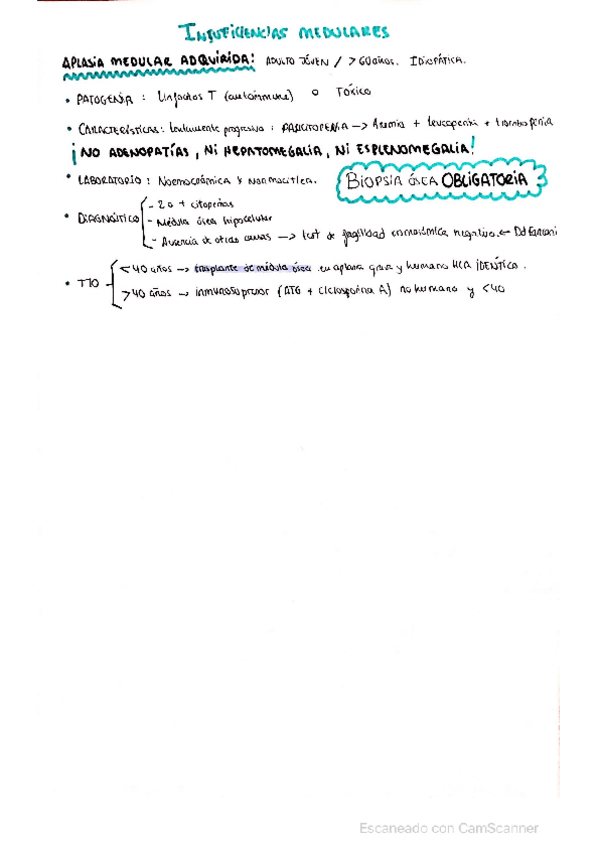 INSUFICIENCIAS MEDULARES
APLASIA MEDULAR ADQUIRIDA: ADULTO JÓVEN / >60 años. IDIOPÁTICA.
• PATOGENIA : Linfocitos T (autoinmune) o Tóxico
• CARACTERÍSTICAS: Lentamente progresiva : PANCITOPENIA → Anemia + leucopenia + trombopenia
¡NO ADENOPATÍAS, NI HEPATOMEGALIA, NI ESPLENOMEGALIA!
• LABORATORIO : Normocrómica y Normocítica. BIOPSIA ÓSEA OBLIGATORIA
• DIAGNÓSTICO - 2 o + citopenias
- Médula ósea hipocelular
- Ausencia de otras causas → test de fragilidad cromosómica negativo. ← Dd Fanconi
• TTO <40 años → trasplante de médula ósea en aplasia grave y hermano HLA IDÉNTICO.
>40 años → inmunosupresor (ATG + Ciclosporina A) no hermano y <40
Escaneado con CamScanner